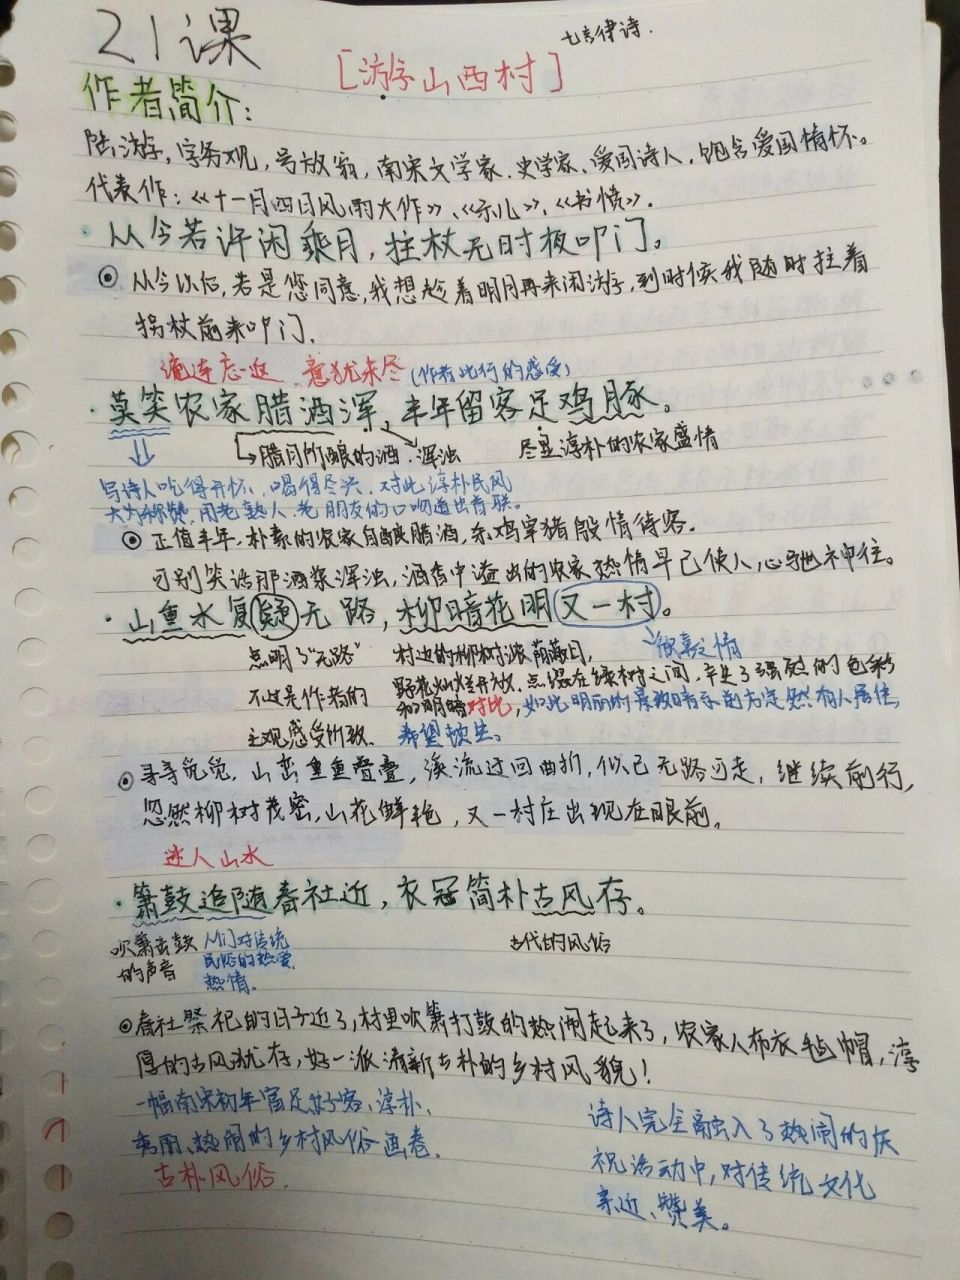 21课
七言律诗.
[游山西村]
作者简介:
陆游,字务观,号放翁,南宋文学家、史学家、爱国诗人,饱含爱国情怀。
代表作:《十一月四日风雨大作》、《示儿》、《书愤》.
·从今若许闲乘月,拄杖无时夜叩门。
⊙从今以后,若是您同意,我想趁着明月再来闲游,到时候我随时拄着
拐杖前来叩门.
流连忘返、意犹未尽(作者此行的感受)
·莫笑农家腊酒浑,丰年留客足鸡豚。
腊月所酿的酒.浑浊 尽显淳朴的农家盛情
写诗人吃得开怀、喝得尽兴、对此淳朴民风
大为称赞,用老熟人、老朋友的口吻道出首联.
⊙正值丰年,朴素的农家自酿腊酒,杀鸡宰猪殷情待客.
可别笑话那酒浆浑浊,酒香中溢出的农家热情早已使人心驰神往。
·山重水复疑无路,柳暗花明又一村。
点明了“无路” 村边的柳树浓荫蔽日, 欣喜之情
不过是作者的 野花灿烂开放.点缀在绿树之间,产生了强烈的色彩
主观感受所致. 和明暗对比,如此明丽的景致暗示前方定然有人居住,
希望顿生.
⊙寻寻觅觅,山峦重重叠叠,溪流迂回曲折,似已无路可走,继续前行,
忽然柳树茂密,山花鲜艳,又一村庄出现在眼前.
迷人山水
·箫鼓追随春社近,衣冠简朴古风存。
吹箫击鼓 人们对传统 古代的风俗
的声音 民俗的热爱.
热情.
⊙春社祭祀的日子近了,村里吹箫打鼓的热闹起来了,农家人布衣毡帽,淳
厚的古风犹存,好一派清新古朴的乡村风貌!
一幅南宋初年富足好客、淳朴、
秀丽、热闹的乡村风俗画卷.
古朴风俗.
诗人完全融入了热闹的庆
祝活动中,对传统文化
亲近、赞美。